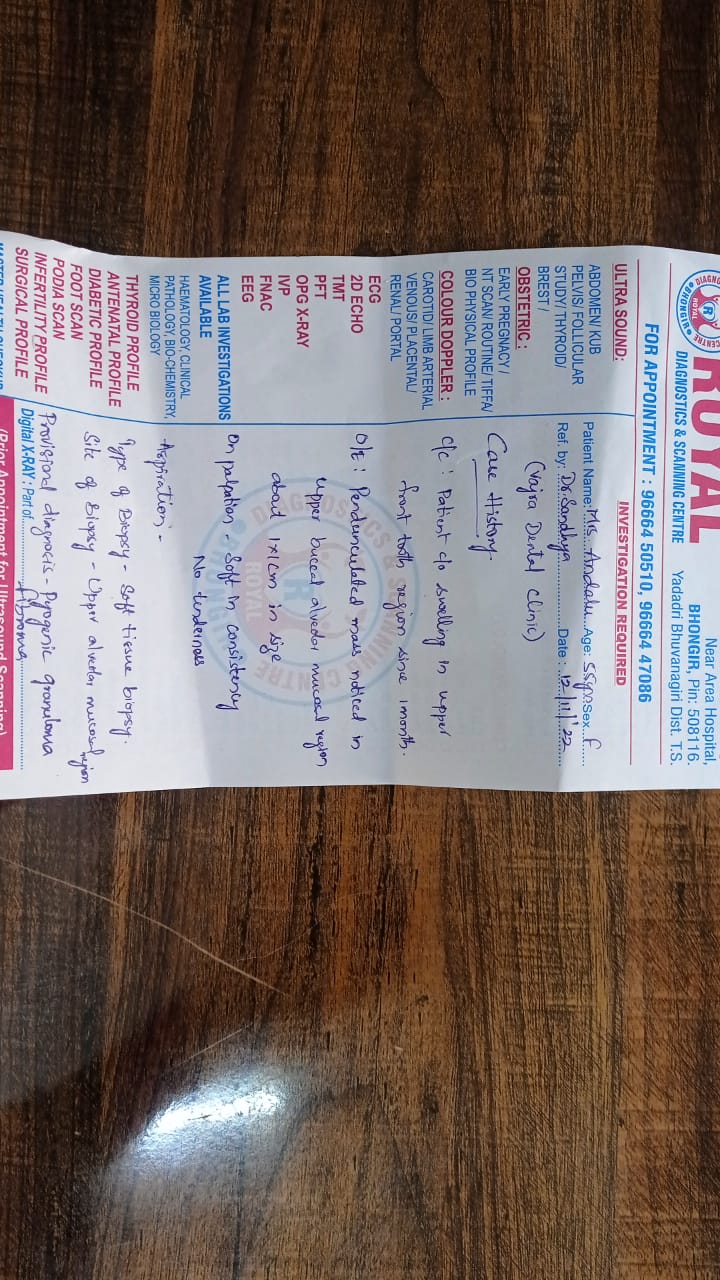 ROYAL
DIAGNOSTICS & SCANNING CENTRE
Near Area Hospital,
BHONGIR, Pin: 508116.
Yadadri Bhuvanagiri Dist. T.S.
FOR APPOINTMENT : 96664 50510, 96664 47086
INVESTIGATION REQUIRED
Patient Name: Mrs. Age: 55yrs Sex F
Ref. by: Dr. Sandhya Date : 12/11/'22
(Vajra Dental Clinic)
Case History-
C/C : Patient c/o swelling in upper
front tooth region since 1 month.
O/E : Pendunculated mass noticed in
upper buccal alveolar mucosal region
about 1x1cm in size
On palpation - Soft in consistency
No tenderness
Aspiration -
Type of Biopsy - Soft tissue biopsy.
Site of Biopsy - Upper alveolar mucosal region
Provisional diagnosis - Pyogenic granuloma
fibroma
Digital X-RAY : Part of
(Prior Appointment for Ultrasound Scanning)
ULTRA SOUND:
ABDOMEN/ KUB
PELVIS/ FOLLICULAR
STUDY/ THYROID/
BREST/
OBSTETRIC :
EARLY PREGNACY/
NT SCAN/ ROUTINE/ TIFFA/
BIO PHYSICAL PROFILE
COLOUR DOPPLER :
CAROTID/ LIMB ARTERIAL
VENOUS/ PLACENTAL/
RENAL/ PORTAL
ECG
2D ECHO
TMT
PFT
OPG X-RAY
IVP
FNAC
EEG
ALL LAB INVESTIGATIONS
AVAILABLE
HAEMATOLOGY, CLINICAL
PATHOLOGY, BIO-CHEMISTRY,
MICRO BIOLOGY
THYROID PROFILE
ANTENATAL PROFILE
DIABETIC PROFILE
FOOT SCAN
PODIA SCAN
INFERTILITY PROFILE
SURGICAL PROFILE